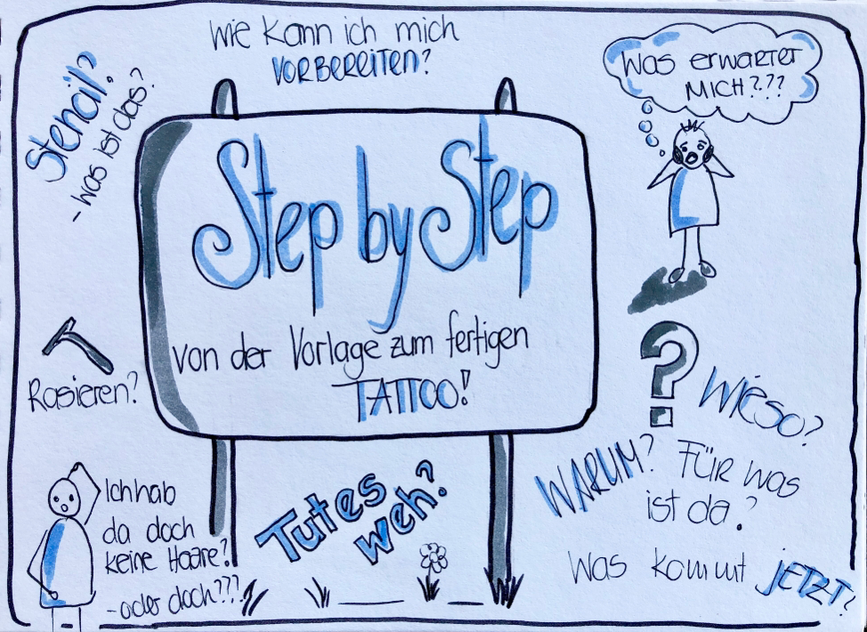 Wie kann ich mich
VORBEREITEN?
Stencil?
- was ist das?
Was erwartet
MICH???
Step by Step
von der Vorlage zum fertigen
TATTOO!
Rasieren?
?
Wieso?
WARUM?
Für was
ist da?
Ich hab
da doch
keine Haare?
- oder doch???
Tut es
weh?
Was kommt JETZT?